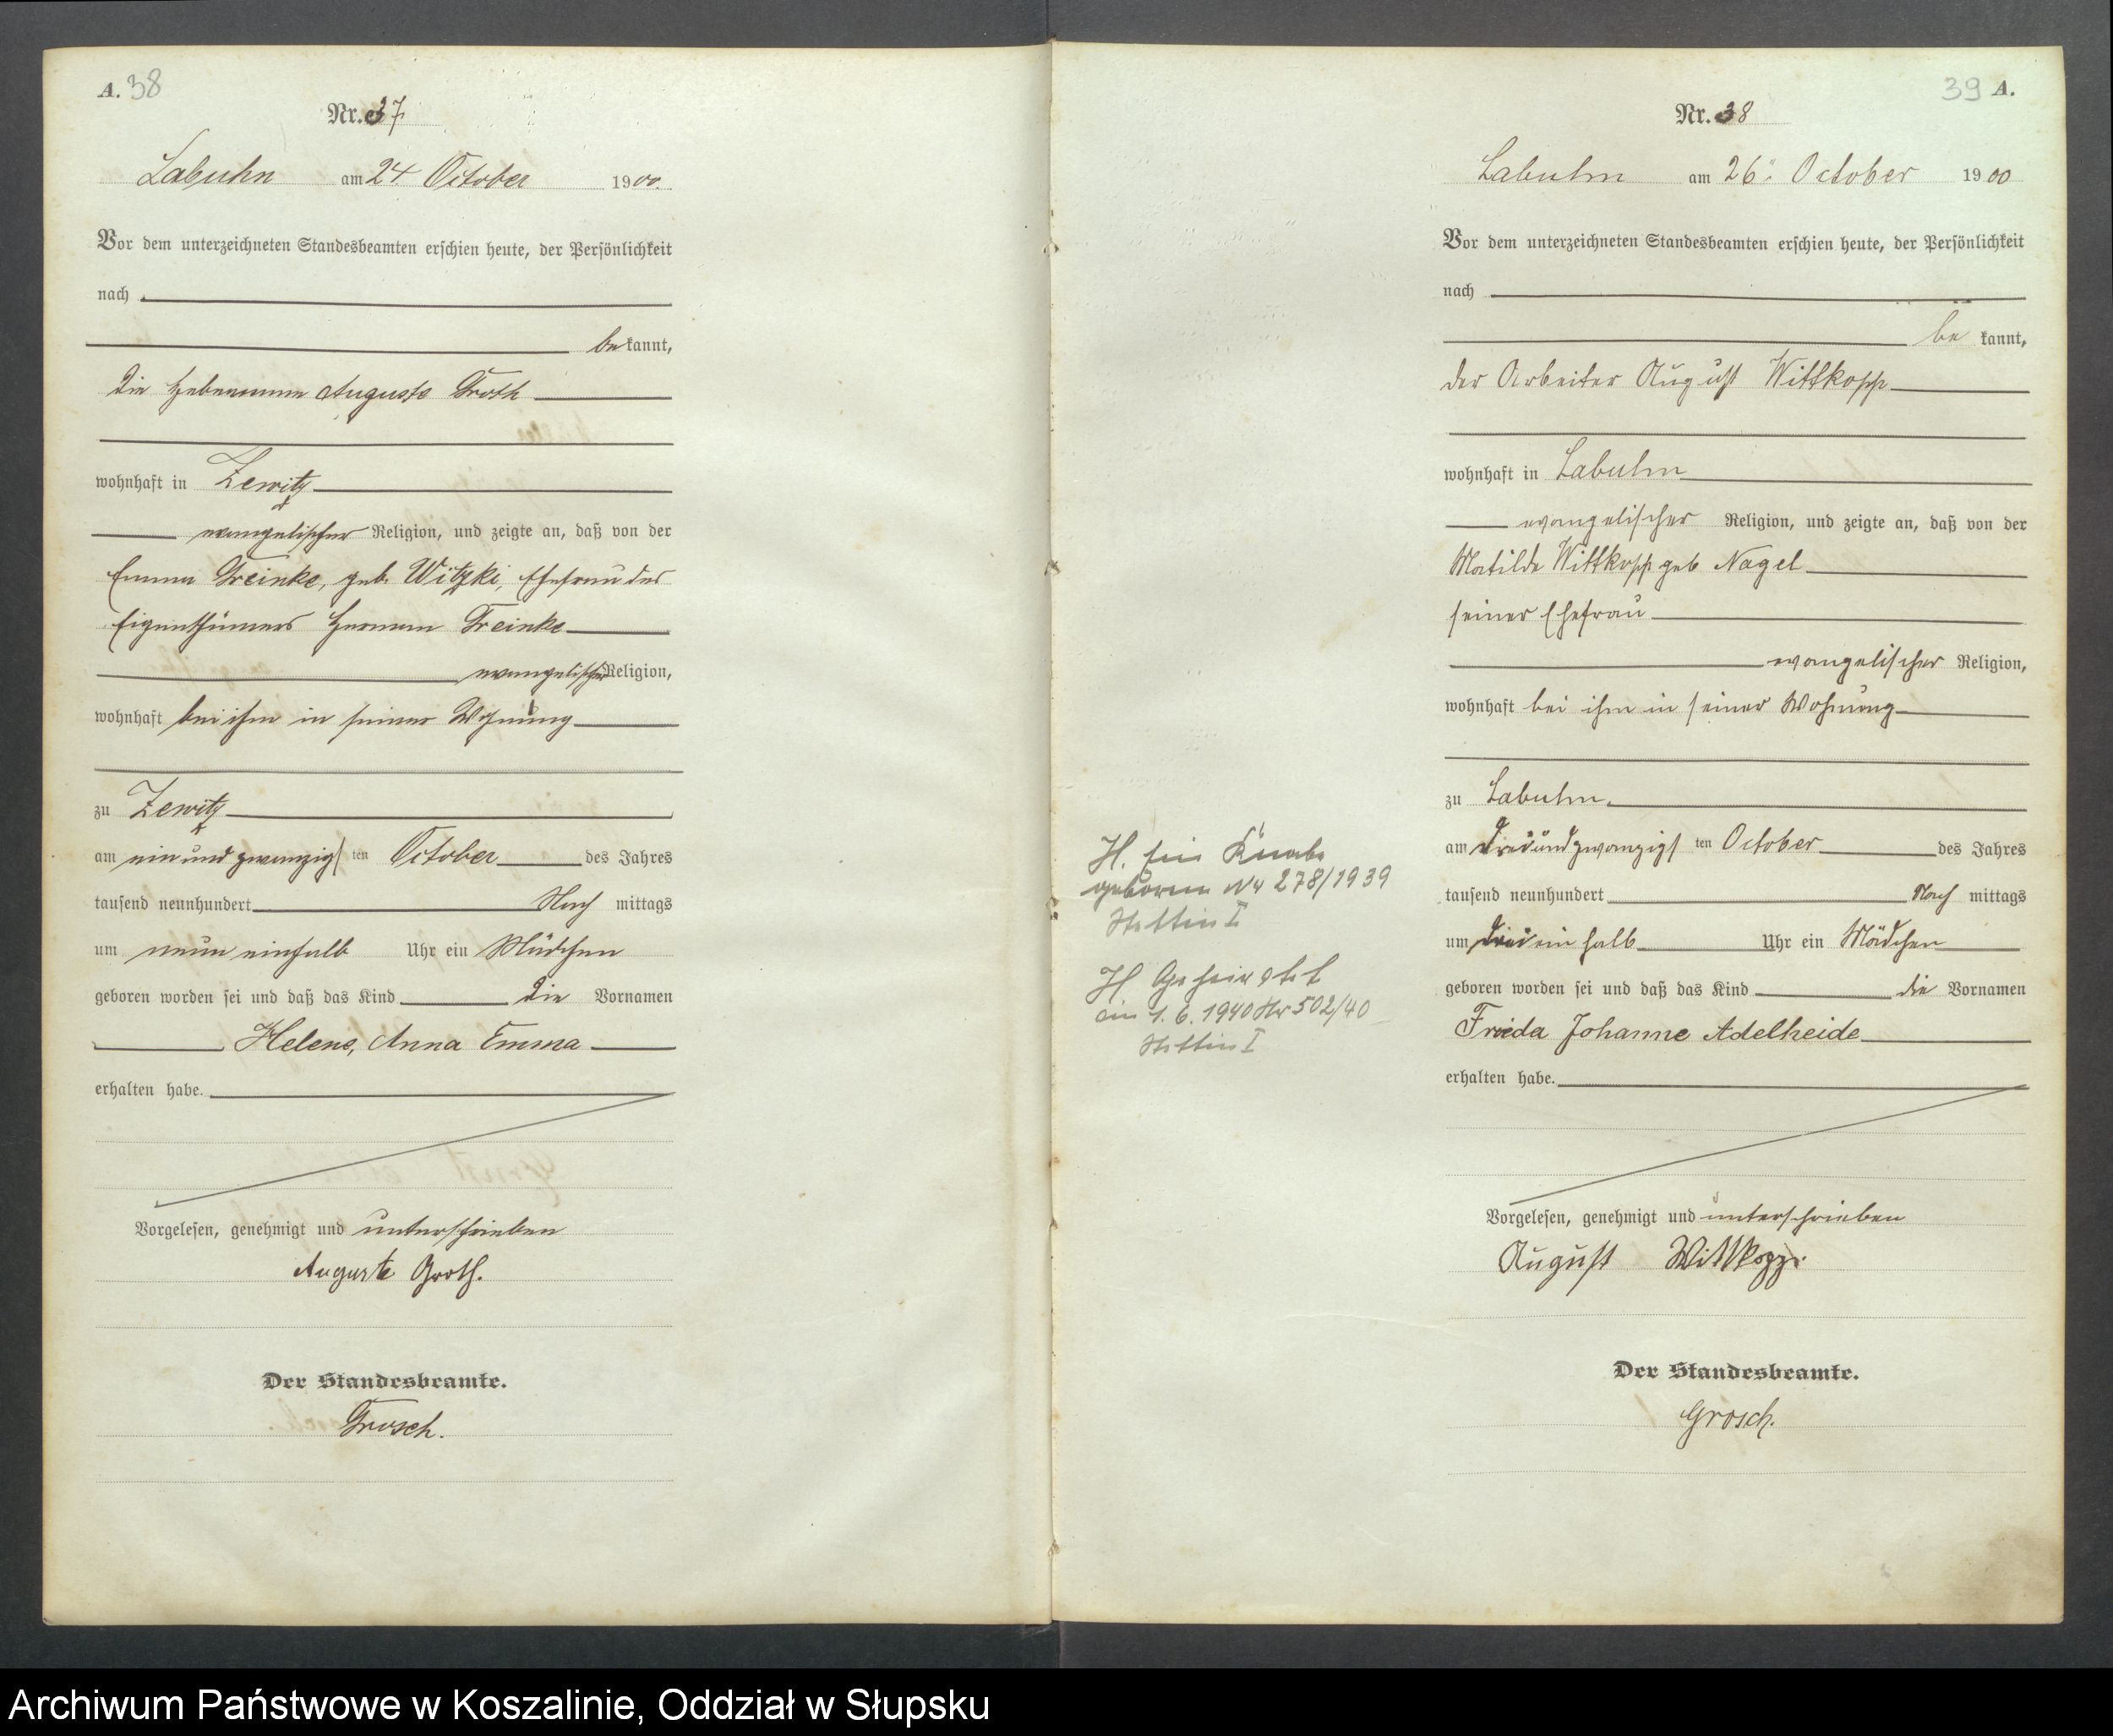 A. 38
Nr. 37
Labuhn am 24. October 1900.
Vor dem unterzeichneten Standesbeamten erschien heute, der Persönlichkeit
nach
be kannt,
die Hebeamme Auguste Groth
wohnhaft in Zewitz
evangelischer Religion, und zeigte an, daß von der
Emma Treinke, geb. Witzki, Ehefrau des
Eigenthümers Herman Treinke
evangelischer Religion,
wohnhaft bei ihm in seiner Wohnung
zu Zewitz
am ein und zwanzigs ten October des Jahres
tausend neunhundert Nach mittags
um neun einhalb Uhr ein Mädchen
geboren worden sei und daß das Kind die Vornamen
Helene, Anna Emma
erhalten habe.
Vorgelesen, genehmigt und unterschrieben
Auguste Groth.
Der Standesbeamte.
Grosch.
39 A.
Nr. 38
Labuhn am 26. October 1900
Vor dem unterzeichneten Standesbeamten erschien heute, der Persönlichkeit
nach
be kannt,
der Arbeiter August Wittkopp
wohnhaft in Labuhn
evangelischer Religion, und zeigte an, daß von der
Matilde Wittkopp geb Nagel
seiner Ehefrau
evangelischer Religion,
wohnhaft bei ihm in seiner Wohnung
zu Labuhn
am dreiundzwanzigs ten October des Jahres
tausend neunhundert Nach mittags
um drei ein halb Uhr ein Mädchen
geboren worden sei und daß das Kind die Vornamen
Frieda Johanne Adelheide
erhalten habe.
Vorgelesen, genehmigt und unterschrieben
August Wittkopp.
Der Standesbeamte.
Grosch.
H. Ein Knabe
geboren Nr 278/1939
Stettin I
H Geheiratet
am 1. 6. 1940 Nr 502/40
Stettin I
Archiwum Państwowe w Koszalinie, Oddział w Słupsku